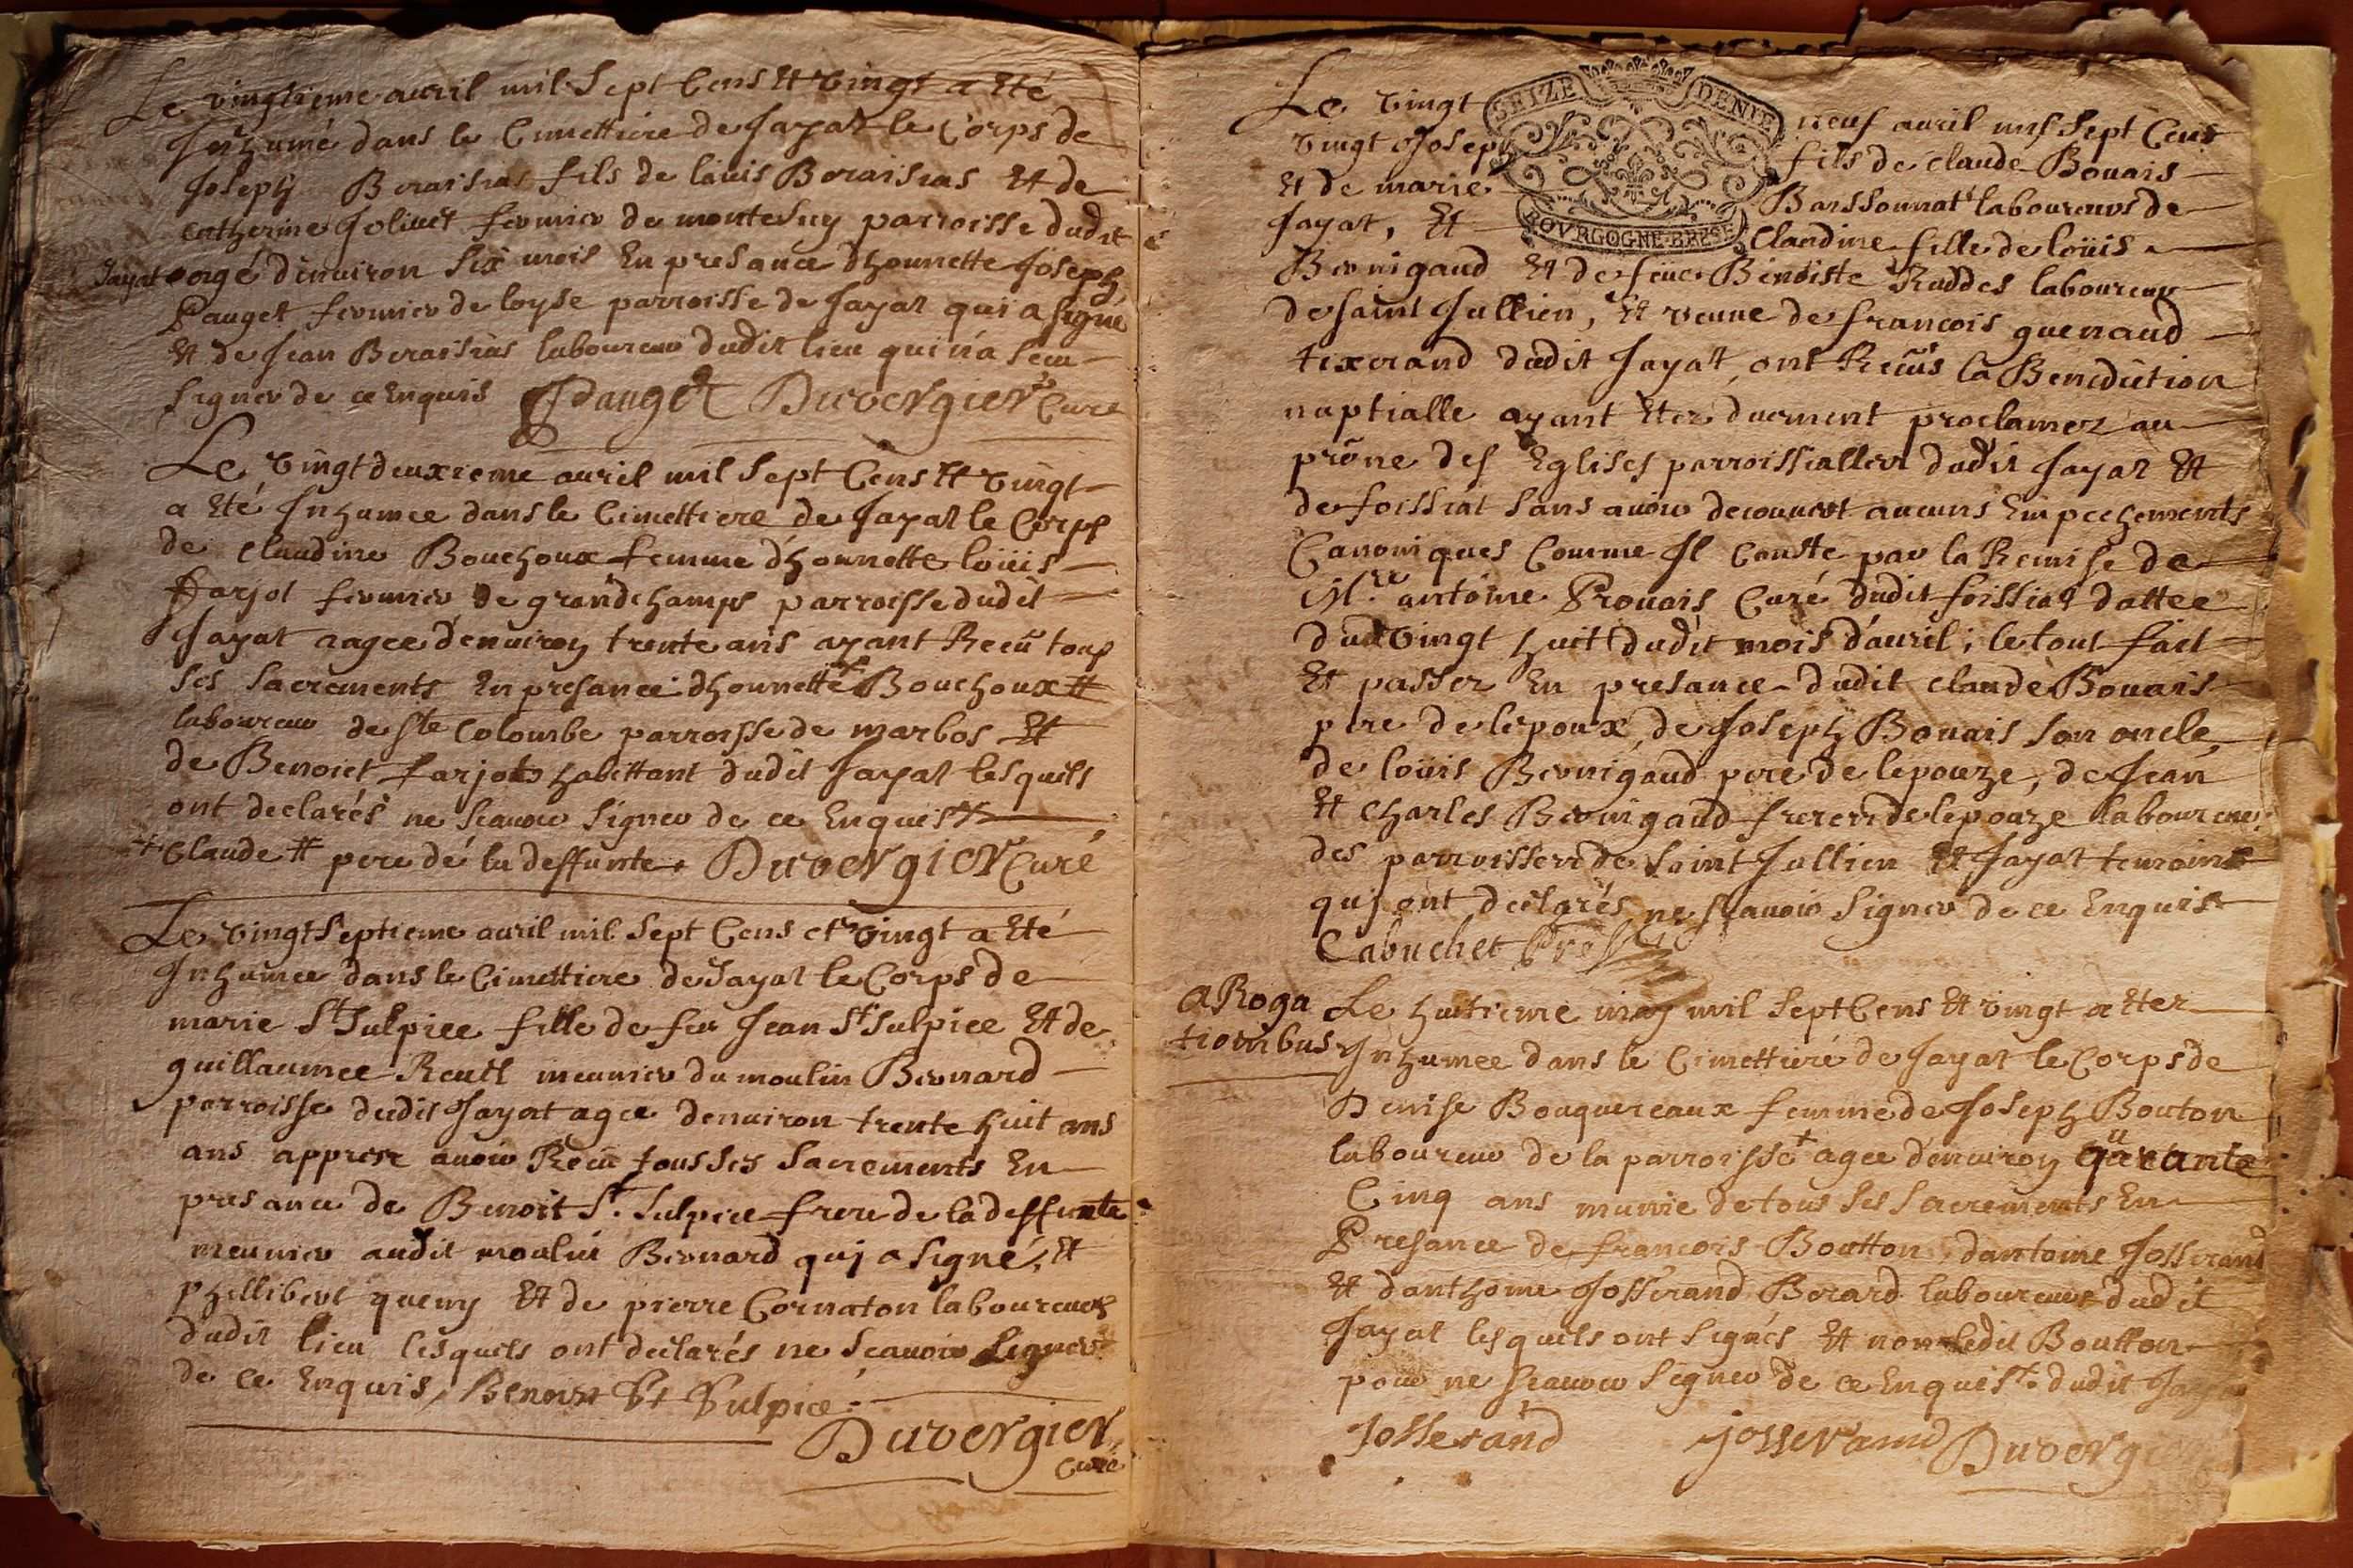 Le vingtieme auril mil Sept Cens Et vingt a Eté
Jnhumé dans le Cimettiere de Jayat le Corps de
Joseph Beraisias fils de louis Beraisias Et de
Catherine Joliuet fermier de montesuy parroisse dudit
Jayat agé denuiron Six mois En presance dhonnette Joseph
Pauget fermier de loyse parroisse de Jayat qui a signé
Et de Jean Beraisias laboureur dudit lieu qui n'a sceu
signer de ce Enquis JPauget Duvergier Curé
Le vingtdeuxieme auril mil Sept Cens Et vingt
a Eté Jnhumee dans le Cimettiere de Jayat le Corps
de Claudine Bouchoux femme d'honnette loüis
farjot fermier de grandchamps parroisse dudit
Jayat aagee denuiron trente ans ayant Receu tous
ses Sacrements En presance dhonnette + Bouchoux #
laboureur de Ste Colombe parroisse de marbos Et
de Benoict farjot habittant dudit Jayat lesquels
ont declarés ne Scauoir Signer de ce Enquist
+ Claude # pere de la deffunte. Duvergier Curé
Le vingtSeptieme auril mil Sept Cens et vingt a Eté
Jnhumee dans le Cimettiere de Jayat le Corps de
marie St Sulpice fille de feu Jean St Sulpice Et de
guillaumee meunier du moulin Bernard
parroisse dudit Jayat agee denuiron trente huit ans
ans appres auoir Receu tous ses Sacrements En
presance de Benoit St. Sulpice frere de la deffunte
meunier audit moulin Bernard quj a Signé, Et
phillibert queny Et de pierre Cornaton laboureurs
dudit lieu lesquels ont declarés ne Scauoir Signer
de ce Enquis, Benoist St Sulpice
Duvergier
Curé
Le vingt neuf auril mil Sept Cens
SEIZE DENIE
BOVRGOGNE·BRESSE
vingt Joseph fils de claude Bouais
Et de marie Banssonnat laboureurs de
Jayat, Et Claudine fille de loüis
Bernigaud Et de feue Benoiste Ruddes laboureur
de saint Jullien, Et veuue de francois guenaud
texerand dudit Jayat, ont Receus la Benediction
nuptialle ayant Etez duement proclamez au
prône des Eglises parroissialles dudit Jayat Et
de foissiat Sans auoir decouuert aucuns Empechements
Canoniques Comme Jl Conste par la Remise de
Mre antoine Prouais Curé dudit foissiat dattee
du vingt huit dudit mois d'auril; le tout fait
Et passez En presance dudit claude Bouais
pere de lepoux, de Joseph Bouais son oncle,
de loüis Bernigaud pere de lepouze, de Jean
Et Charles Bernigaud freres de lepouze laboureurs
des parroisses de Saint Jullien Et Jayat temoins
quj ont declarés ne scauoir Signer de ce Enquis
Cabuchet
a Roga
tionibus
Le huitieme may mil Sept Cens Et vingt a Etez
Jnhumee dans le Cimettiere de Jayat le Corps de
Denise Bouquereaux femme de Joseph Bouton
laboureur de la parroisse + agee denuiron quarante
Cinq ans munie de tous ses Sacrements En
Presance de francois Boutton, dantoine Josserand
Et danthoine Josserand Berard laboureurs dudit
Jayat lesquels ont signés Et non ledit Boutton
pour ne scauoir Signer de ce Enquist. dudit
Josserand josserand